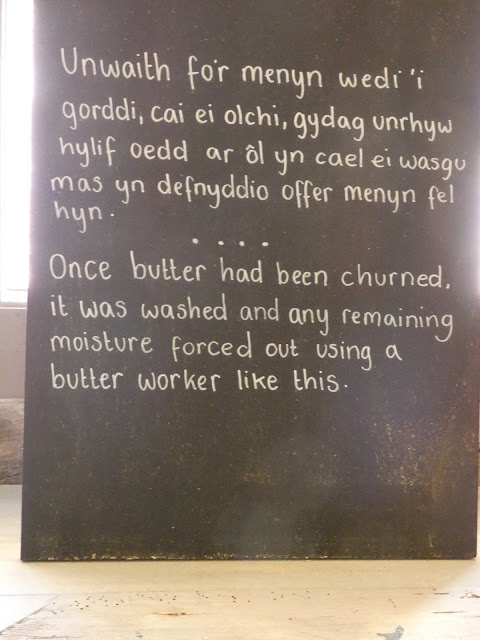 Unwaith fo'r menyn wedi 'i
gorddi, cai ei olchi, gydag unrhyw
hylif oedd ar ôl yn cael ei wasgu
mas yn defnyddio offer menyn fel
hyn.
. . . .
Once butter had been churned,
it was washed and any remaining
moisture forced out using a
butter worker like this.